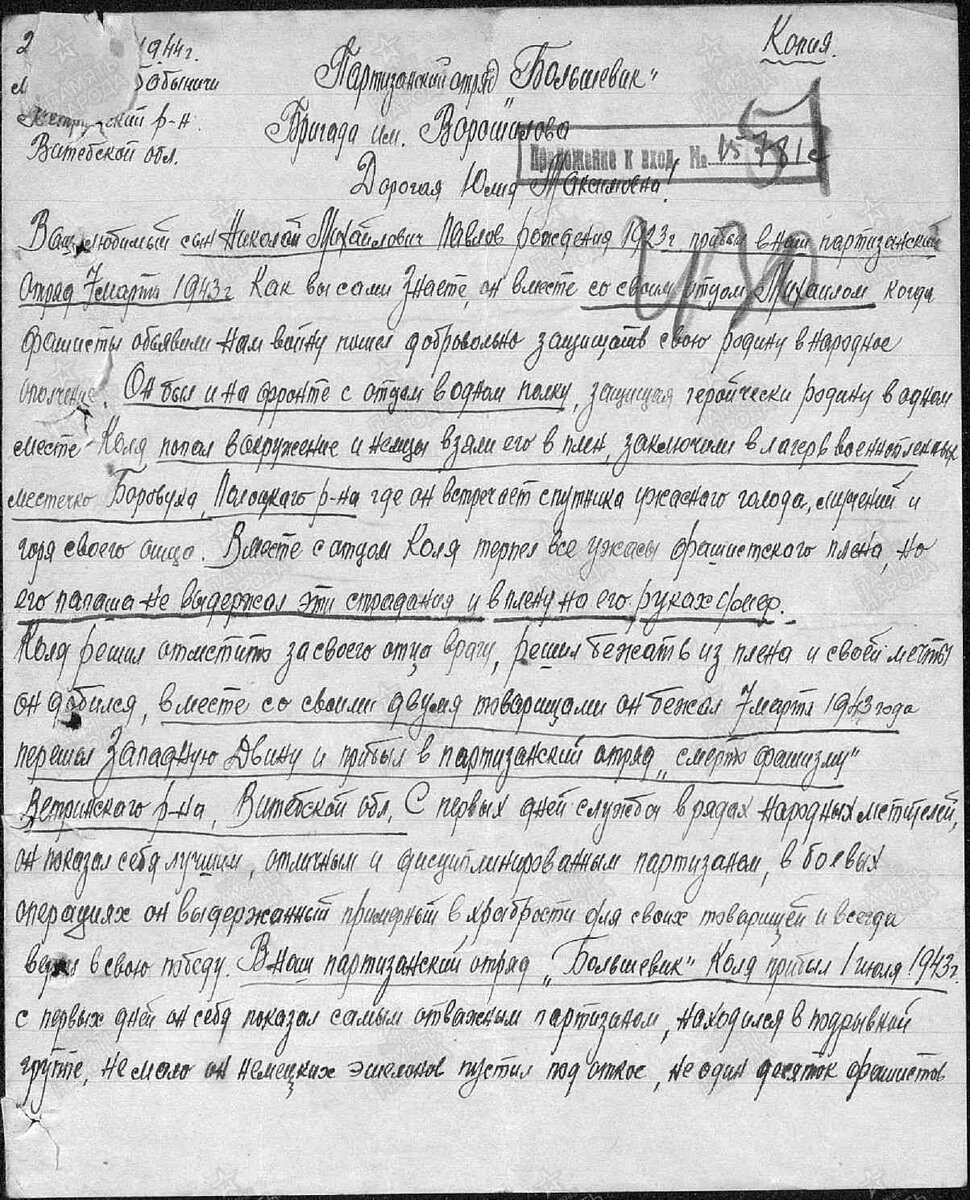 Копия
2 1944г.
Обыничи
Ветринский р-н.
Витебской обл.
Партизанский отряд "Большевик"
Бригада им. Ворошилова
Приложение к вход. №
Дорогая Юлия Максимовна!
Ваш любимый сын Николай Михайлович Павлов рождения 1923г прибыл в наш партизанский
отряд 7 марта 1943г Как вы сами знаете, он вместе со своим отцом Михаилом когда
фашисты объявили нам войну пошел добровольно защищать свою родину в народное
ополчение. Он был и на фронте с отцом в одном полку, защищая геройчески родину в одном
месте Коля попал в окружение и немцы взяли его в плен, заключили в лагерь военнопленных
местечко Боровуха, Полоцкого р-на где он встречает спутника ужасного голода, мучений и
горя своего отца. Вместе с отцом Коля терпел все ужасы фашистского плена, но
его папаша не выдержал эти страдания и в плену на его руках умер.
Коля решил отмстить за своего отца врагу, решил бежать из плена и своей мечты
он добился, вместе со своими двумя товарищами он бежал 7 марта 1943 года
перешол Западную Двину и прибыл в партизанский отряд "смерть фашизму"
Ветринского р-на, Витебской обл, С первых дней службы в рядах народных мстителей,
он показал себя лучшим, отличным и дисциплинированным партизаном, в боевых
операциях он выдержанный примерный в храбрости для своих товарищей и всегда
верил в свою победу. В наш партизанский отряд "Большевик" Коля прибыл 1 июля 1943г.
с первых дней он себя показал самым отважным партизаном, находился в подрывной
группе, не мало он немецких эшелонов пустил под откос, не один десяток фашистов